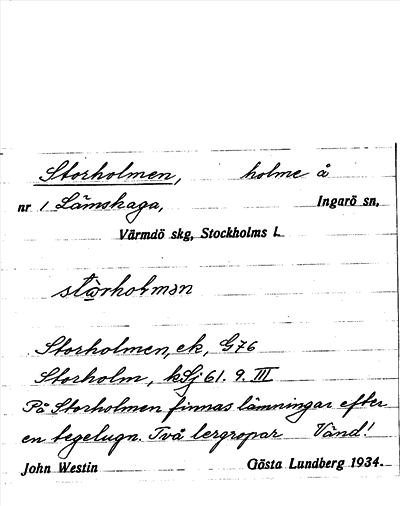 Storholmen, holme å
nr 1 Lämshaga, Ingarö sn,
Värmdö skg, Stockholms l.
Storholmen, ek, G76
Storholm, kSj 61. 9. III
På Storholmen finnas lämningar efter
en tegelugn. Två lergropar Vänd!
John Westin Gösta Lundberg 1934.